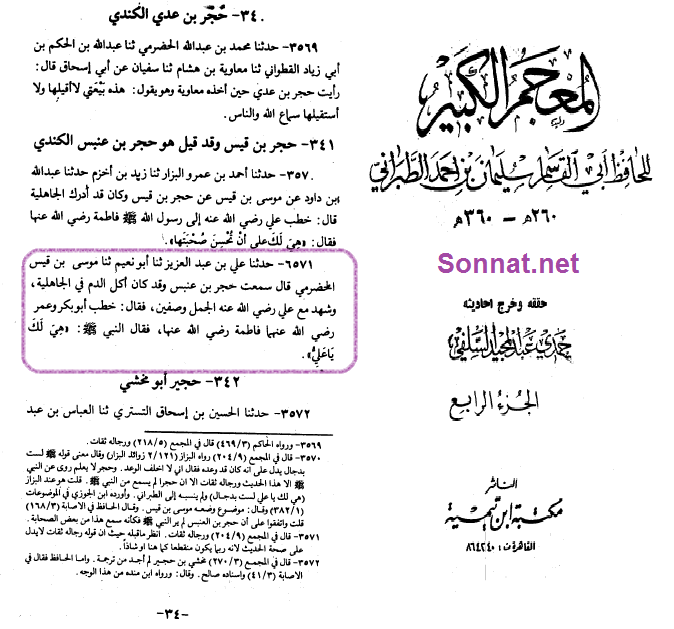 ٣٤٠- حُجْر بن عدي الكندي
٣٥٦٩- حدثنا محمد بن عبدالله الحضرمي ثنا عبدالله بن الحكم بن
أبي زياد القطواني ثنا معاوية بن هشام ثنا سفيان عن أبي إسحاق قال:
رأيت حجر بن عدي حين أخذه معاوية وهو يقول: هذه بَيْعَتي لا أقيلها ولا
أستقيلها سماع الله والناس.
٣٤١- حجر بن قيس وقد قيل هو حجر بن عنبس الكندي
٣٥٧٠- حدثنا أحمد بن عمرو البزار ثنا زيد بن أخزم حدثنا عبدالله
بن داود عن موسى بن قيس عن حجر بن قيس وكان قد أدرك الجاهلية
قال: خطب علي رضي الله عنه إلى رسول الله ﷺ فاطمة رضي الله عنها
فقال: «هِيَ لَكَ على أنْ تُحْسِنَ صُحْبَتَها».
٦٥٧١- حدثنا علي بن عبد العزيز ثنا أبو نعيم ثنا موسى بن قيس
الحضرمي قال سمعت حجر بن عنبس وقد كان أكل الدم في الجاهلية،
وشهد مع علي رضي الله عنه الجمل وصفين، فقال: خطب أبوبكر وعمر
رضي الله عنهما فاطمة رضي الله عنها، فقال النبي ﷺ: «هِيَ لَكَ
يَا عَلِيُّ».
٣٤٢- حجير أبو مخشي
٣٥٧٢- حدثنا الحسين بن إسحاق التستري ثنا العباس بن عبد
٣٥٦٩- ورواه الحاكم (٤٦٩/٣) قال في المجمع (٢١٨/٥) ورجاله ثقات.
٣٥٧٠- قال في المجمع (٢٠٤/٩) رواه البزار (٢/١٢١ زوائد البزار) وقال معنى قوله ﷺ لست
بدجال يدل على انه كان قد وعده فقال اني لا اخلف الوعد. وحجر لا يعلم روى عن النبي
ﷺ الا هذا الحديث ورجاله ثقات الا ان حجرا لم يسمع من النبي ﷺ. قلت هو عند البزار
(هي لك يا علي لست بدجال) ولم ينسبه إلى الطبراني. وأورده ابن الجوزي في الموضوعات
(٣٨٢/١) وقال: موضوع وضعه موسى بن قيس. وقال الحافظ في الاصابة (١٦٨/٣)
قلت واتفقوا على أن حجر بن العنبس لم ير النبي ﷺ فكأنه سمع هذا من بعض الصحابة.
٣٥٧١- قال في المجمع (٢٠٤/٩) ورجاله ثقات. انظر ماقبله حيث ان قوله رجاله ثقات لايدل
على صحة الحديث لانه ربما يكون منقطعا كما هنا او شاذاً.
٣٥٧٢- قال في المجمع (٢٧٠/٣) مخشي بن حجير لم أجد من ترجمة. واما الحافظ فقال في
الاصابة (٤١/٣) واسناده صالح. وقال: ورواه ابن منده من هذا الوجه.
-٣٤-
المعجم الكبير
للحافظ أبي القاسم سليمان بن أحمد الطبراني
٢٦٠ هـ - ٣٦٠ هـ
Sonnat.net
حققه وخرج احاديثه
حمدي عبد المجيد السلفي
الجزء الرابع
الناشر
مكتبة ابن تيمية
القاهرة ت: ٨٦٤٢٤٠